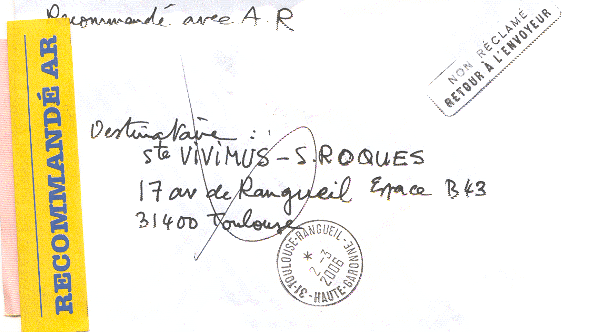 Recommandé avec A.R
RECOMMANDÉ AR
NON RÉCLAMÉ
RETOUR À L'ENVOYEUR
Destinataire :
Sté VIVIMUS - S. ROQUES
17 av de Rangueil Espace B43
31400 Toulouse
31-TOULOUSE-RANGUEIL-HAUTE-GARONNE
* 2-3
2006